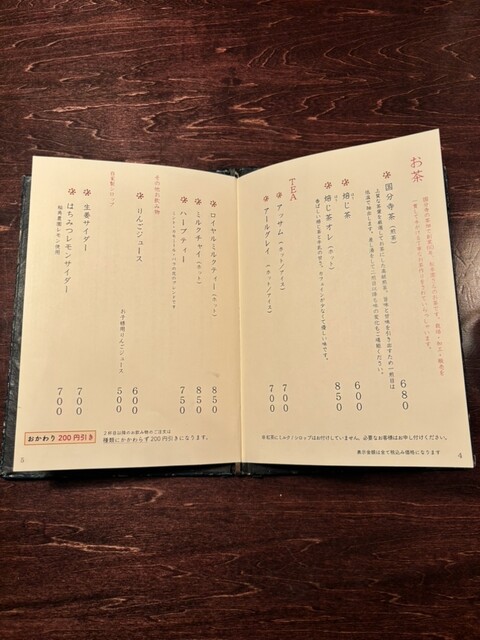 お茶
国分寺茶（煎茶）
680
焙じ茶
600
焙じ茶オレ（ホット）
香ばしい焙じ茶と牛乳の甘さ。カフェインが少なくて優しい味です。
850
TEA
アッサム（ホット／アイス）
700
アールグレイ（ホット／アイス）
700
※紅茶にミルク／シロップはお付けしていません。必要なお客様はお申し付けください。
表示金額は全て税込み価格になります
4
ロイヤルミルクティー（ホット）
850
ミルクチャイ（ホット）
850
ハーブティー
750
その他お飲み物
りんごジュース
600
お子様用りんごジュース
500
自家製シロップ
生姜サイダー
700
はちみつレモンサイダー
700
おかわり 200円引き
2杯目以降のお飲み物のご注文は
種類にかかわらず200円引きになります。
5